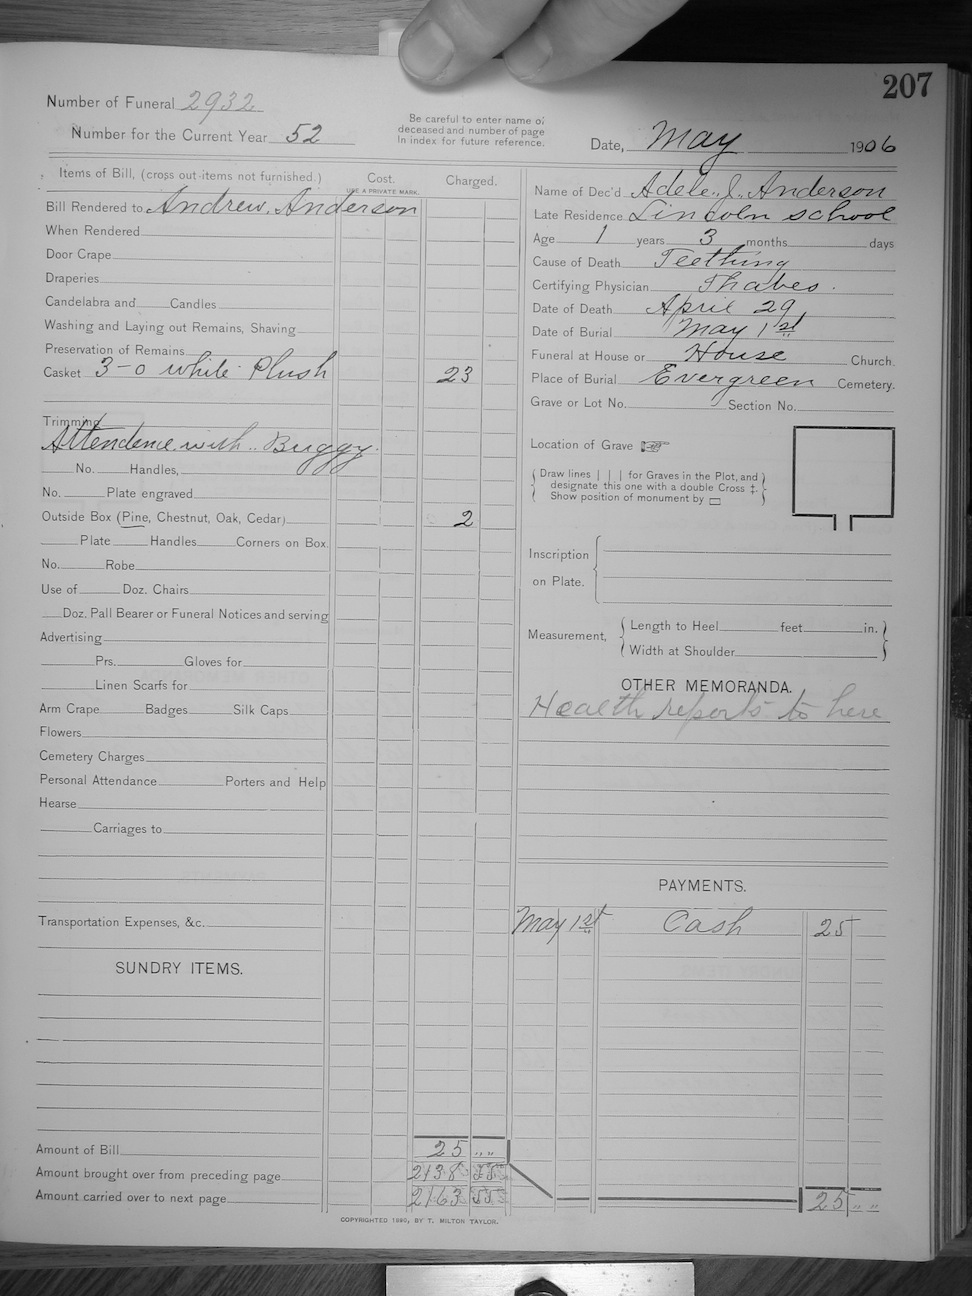 207
Number of Funeral 2932
Number for the Current Year 52
Be careful to enter name of
deceased and number of page
in index for future reference.
Date, May 1906
Items of Bill, (cross out items not furnished.) Cost. Charged.
USE A PRIVATE MARK.
Bill Rendered to Andrew. Anderson
When Rendered
Door Crape
Draperies
Candelabra and Candles
Washing and Laying out Remains, Shaving
Preservation of Remains
Casket 3-0 while Plush 23
Trimming
Attendence with Buggy.
No. Handles,
No. Plate engraved
Outside Box (Pine, Chestnut, Oak, Cedar) 2
Plate Handles Corners on Box.
No. Robe
Use of Doz. Chairs
Doz. Pall Bearer or Funeral Notices and serving
Advertising
Prs. Gloves for
Linen Scarfs for
Arm Crape Badges Silk Caps
Flowers
Cemetery Charges
Personal Attendance Porters and Help
Hearse
Carriages to
Transportation Expenses, &c.
SUNDRY ITEMS.
Amount of Bill 25 ,, ,,
Amount brought over from preceding page 2138 55
Amount carried over to next page 2163 55
Name of Dec'd Adele. J. Anderson
Late Residence Lincoln school
Age 1 years 3 months days
Cause of Death Teething
Certifying Physician Thabes.
Date of Death April 29
Date of Burial May 1st
Funeral at House or House Church.
Place of Burial Evergreen Cemetery.
Grave or Lot No. Section No.
Location of Grave ☞
(Draw lines | | | for Graves in the Plot, and
designate this one with a double Cross ‡.
Show position of monument by ▭)
Inscription
on Plate.
Measurement, Length to Heel feet in.
Width at Shoulder
OTHER MEMORANDA.
Health reports to here
PAYMENTS.
May 1st Cash 25
25 ,, ,,
COPYRIGHTED 1890, BY T. MILTON TAYLOR.